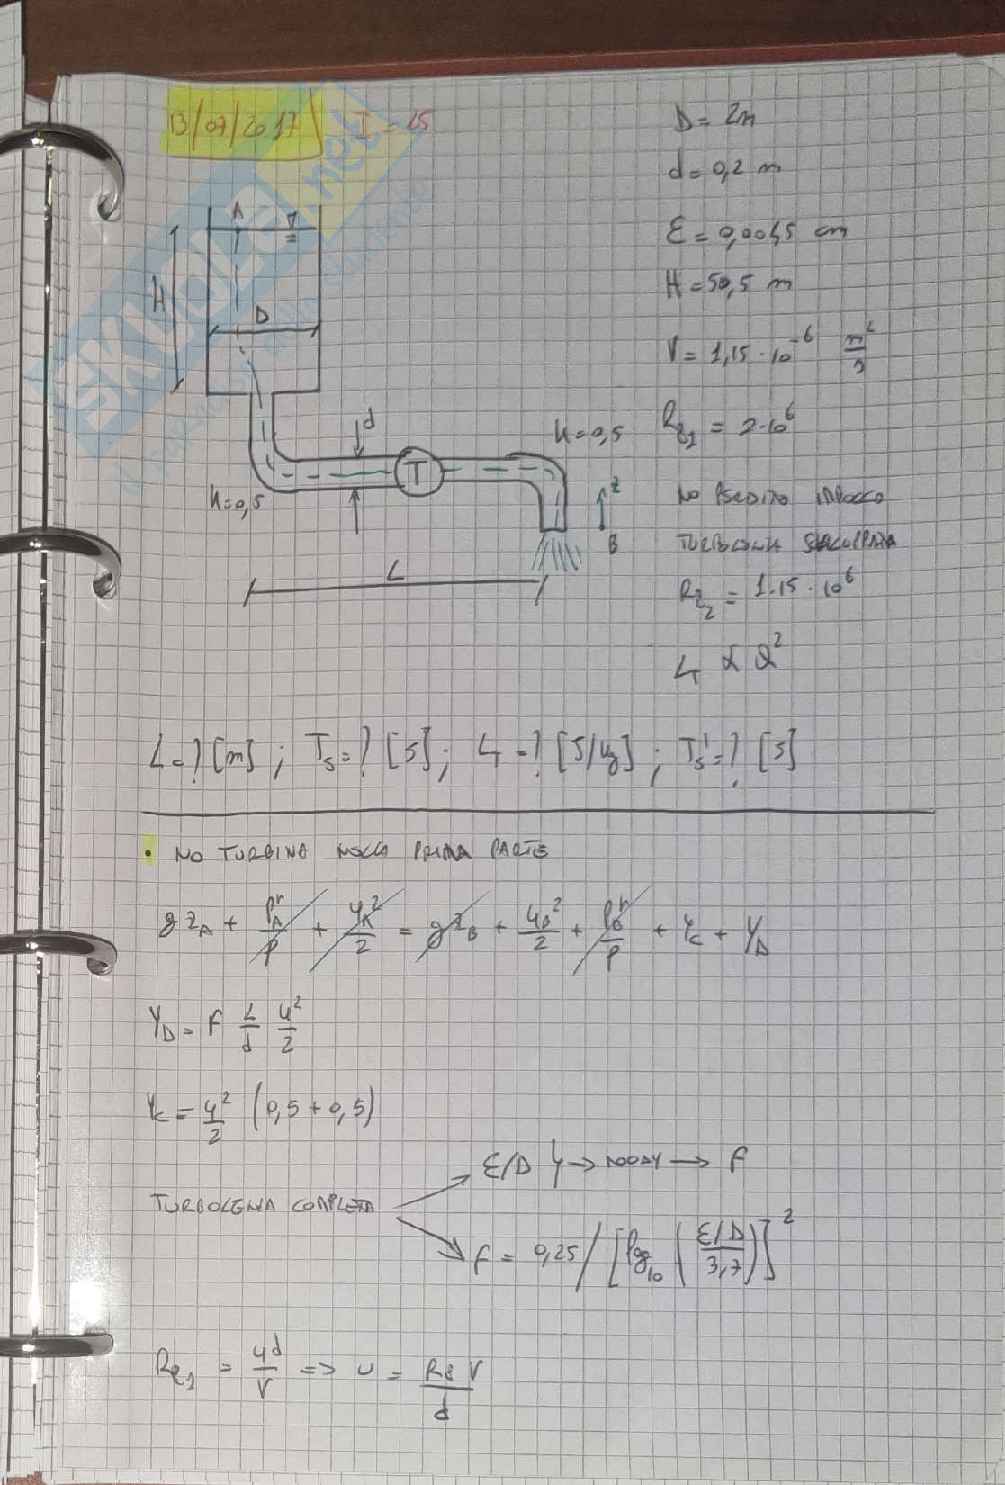 13/07/2017 I-15
D = 2m
d = 0,2 m
ε = 0,0045 cm
H = 50,5 m
ν = 1,15 · 10⁻⁶ m²/s
Re₁ = 2·10⁶
NO PERDITA IMBOCCO
TURBOLENZA SVILUPPATA
Re₂ = 1.15 · 10⁶
L_T α Q²
A
H
D
d
T
K=0,5
K=0,5
z
B
L
SKUOLA.net
L=? [m] ; Ts=? [s] ; L_T=? [J/kg] ; Ts'=? [s]
• NO TURBINA NELLA PRIMA PARTE
g z_A + p_A^r/ρ + u_A²/2 = g z_B + u_B²/2 + p_B^r/ρ + Y_C + Y_D
Y_D = f L/d u²/2
Y_C = u²/2 (0,5 + 0,5)
TURBOLENZA COMPLETA
ε/D → MOODY → f
f = 0,25 / [log₁₀ ((ε/D)/3,7)]²
Re₁ = ud/ν => u = Re ν/d